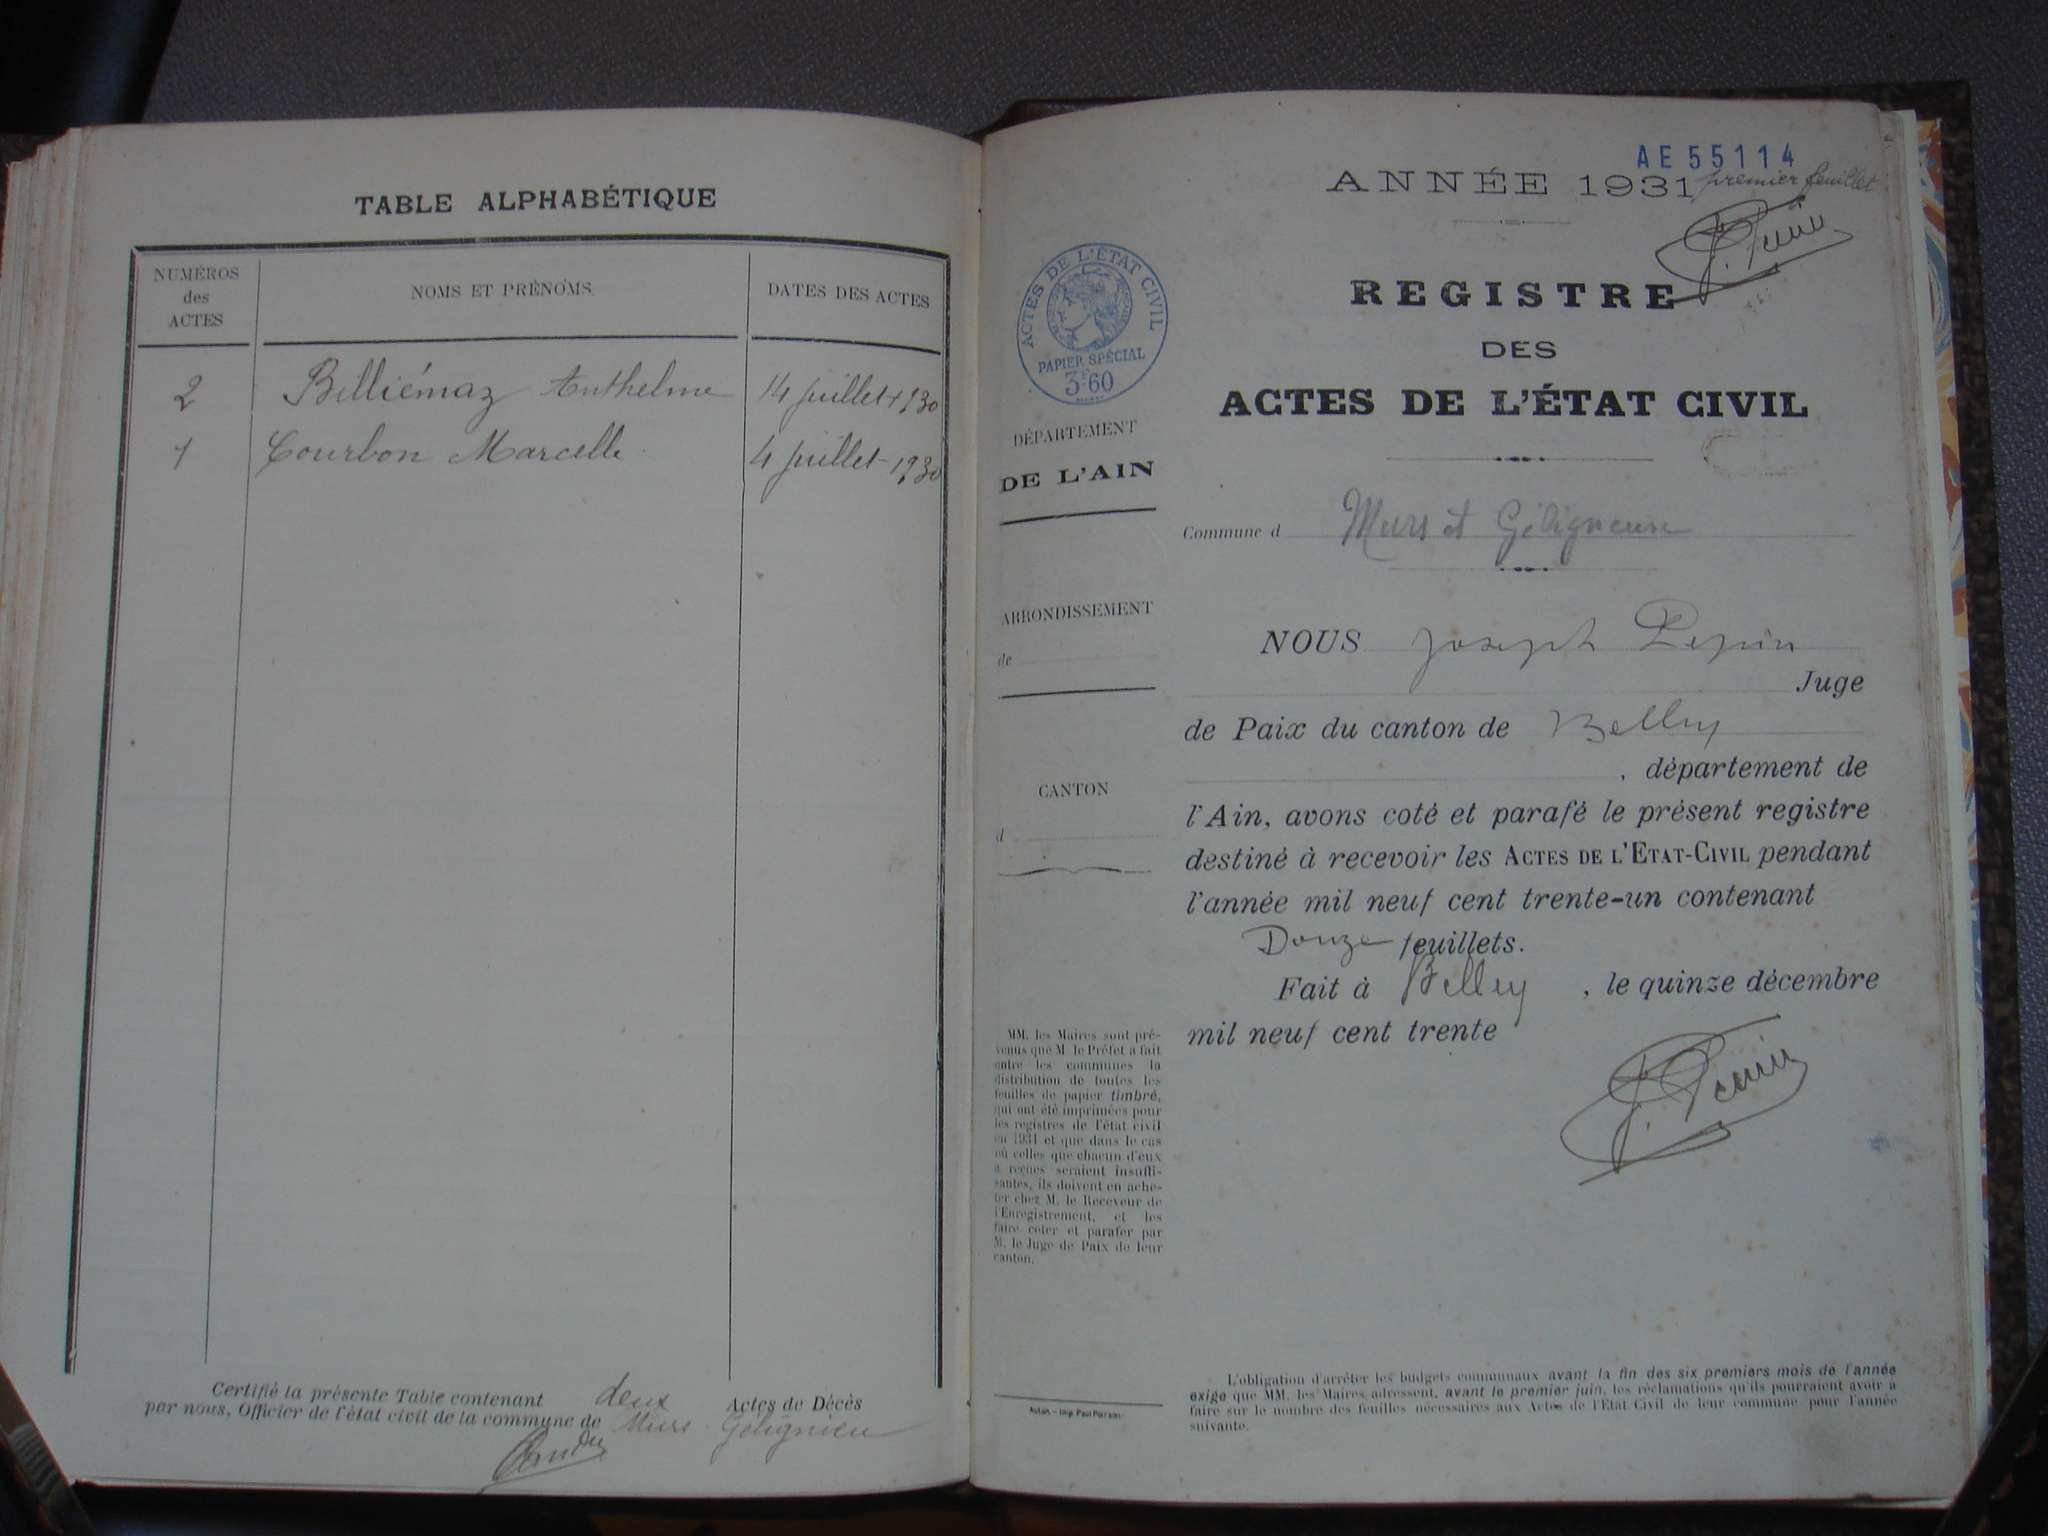 TABLE ALPHABÉTIQUE
NUMÉROS
des
ACTES
NOMS ET PRÉNOMS
DATES DES ACTES
2 Billiémaz Anthelme 14 juillet 1930
1 Courbon Marcelle 4 juillet 1930
Certifié la présente Table contenant deux Actes de Décès
par nous, Officier de l'état civil de la commune de Murs Gélignieu
AE 55114
ANNÉE 1931 premier feuillet
REGISTRE
DES
ACTES DE L'ÉTAT CIVIL
ACTES DE L'ÉTAT CIVIL
PAPIER SPÉCIAL
3F60
DÉPARTEMENT
DE L'AIN
ARRONDISSEMENT
de
CANTON
d
MM. les Maires sont pré-
venus que M le Préfet a fait
entre les communes la
distribution de toutes les
feuilles de papier timbré,
qui ont été imprimées pour
les registres de l'état civil
en 1931 et que dans le cas
où celles que chacun d'eux
a reçues seraient insuffi-
santes, ils doivent en ache-
ter chez M. le Receveur de
l'Enregistrement, et les
faire coter et parafer par
M. le Juge de Paix de leur
canton.
Commune d Murs et Gélignieux
NOUS Joseph Pepin
Juge
de Paix du canton de Belley
, département de
l'Ain, avons coté et parafé le présent registre
destiné à recevoir les ACTES DE L'ETAT-CIVIL pendant
l'année mil neuf cent trente-un contenant
Douze feuillets.
Fait à Belley , le quinze décembre
mil neuf cent trente
L'obligation d'arrêter les budgets communaux avant la fin des six premiers mois de l'année
exige que MM. les Maires adressent, avant le premier juin, les réclamations qu'ils pourraient avoir à
faire sur le nombre des feuilles nécessaires aux Actes de l'Etat Civil de leur commune pour l'année
suivante.